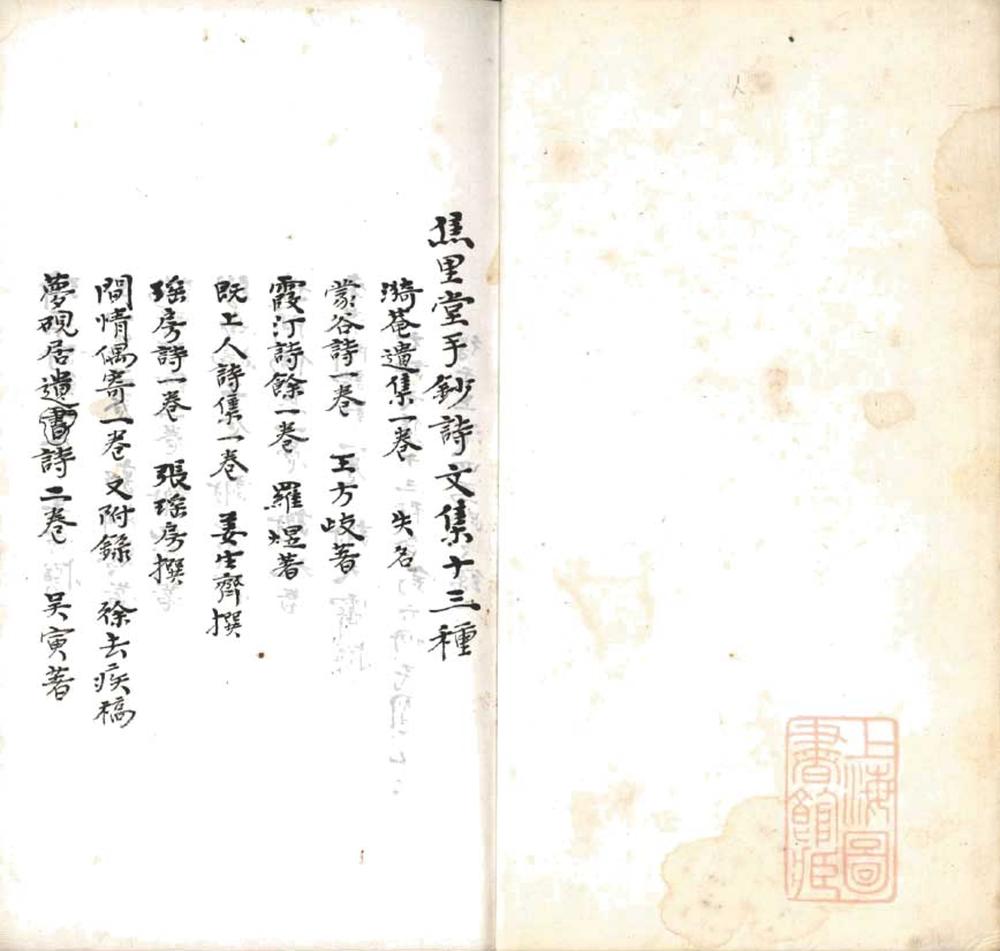 上海圖
書館藏
焦里堂手鈔詩文集十三種
漪菴遺集一卷 失名
蒙谷詩一卷 王方歧著
霞汀詩餘一卷 羅煜著
既上人詩集一卷 姜生齊撰
瑤房詩一卷 張瑤房撰
閒情偶寄一卷又附錄 徐去疾稿
夢硯居遺書詩二卷 吳寅著